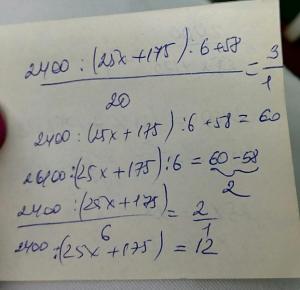 2400 : (25x + 175) : 6 + 58 = 3
20 1
2400 : (25x + 175) : 6 + 58 = 60
2400 : (25x + 175) : 6 = 60 - 58
2
2400 : (25x + 175) = 2
6 1
2400 : (25x + 175) = 12